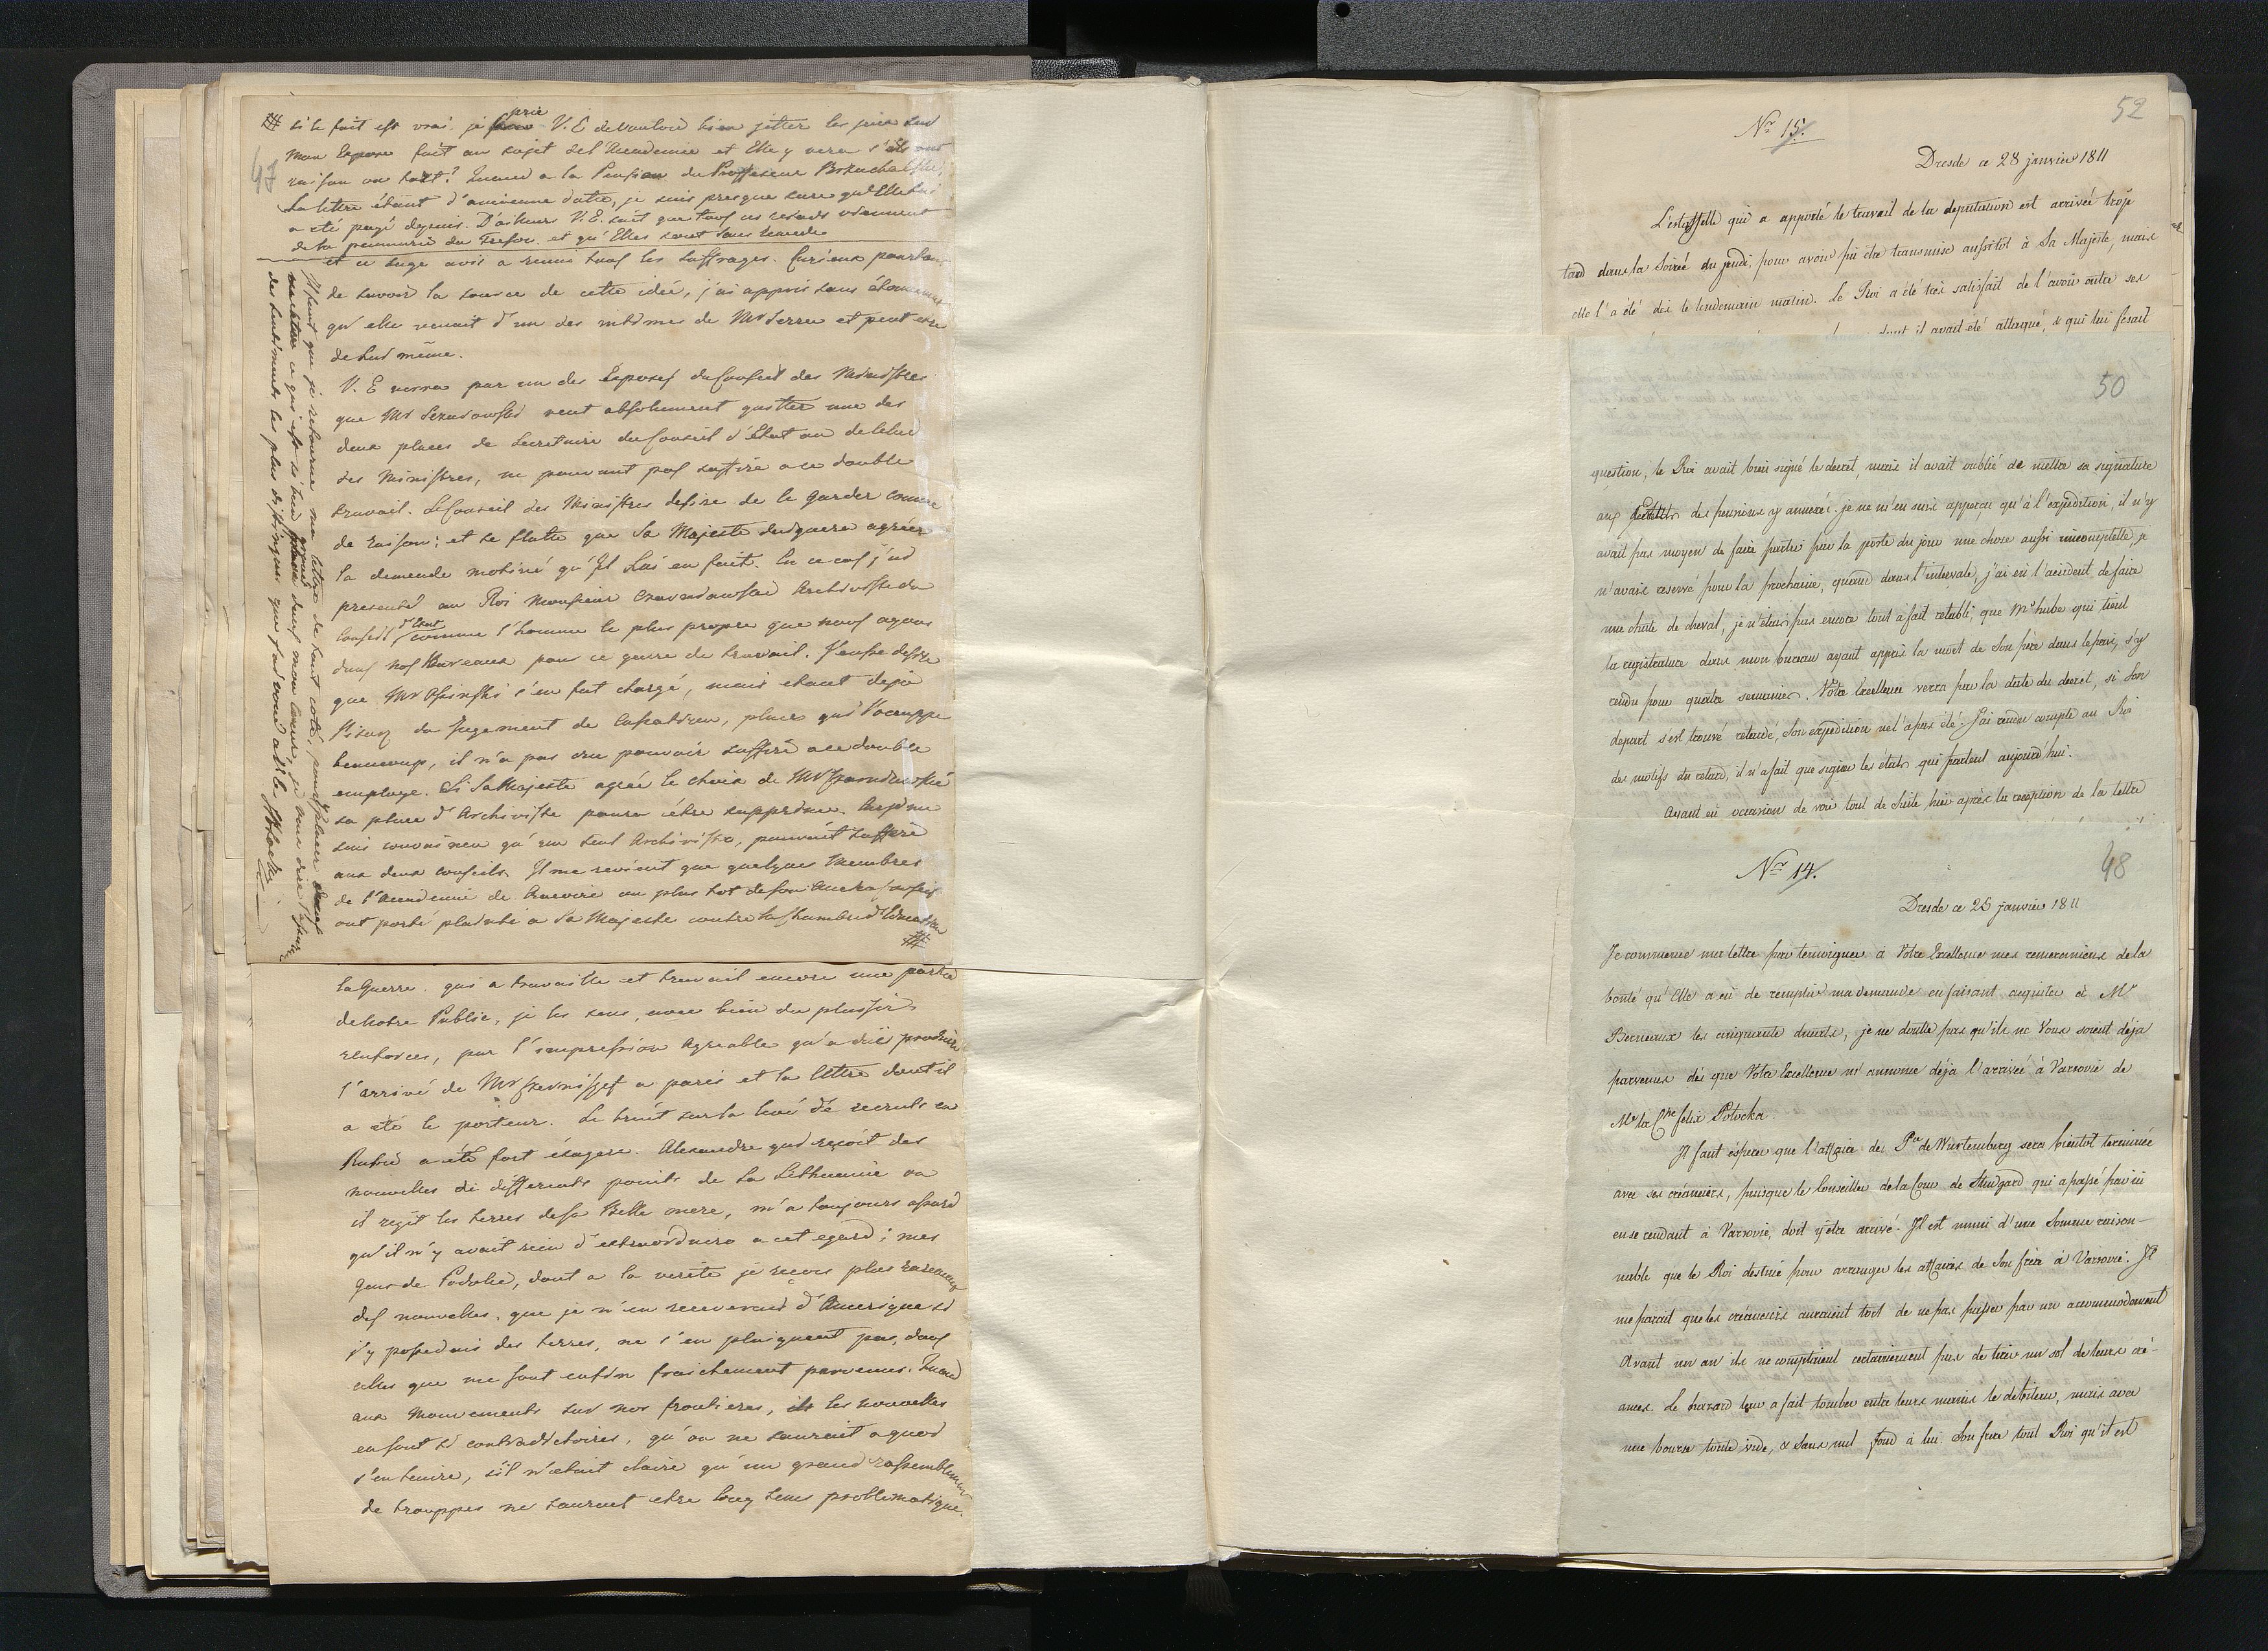 # si le fait est vrai. je prie V. E de vouloir bien jetter les jeux sur
mon Exposé fait au sujet de l'Academie et Elle y verra s'ils ont
raison ou tort? Quand a la Pension du Professeur
La lettre étant d'ancienne datte, je suis presque sure qu'Elle lui
a été payé depuis. D'ailleurs V. E. sait que tous ces retards viennent
de la penurie du Tresor. et qu'Elles sont sans remede
47
et ce sage avis a reuni tous les suffrages. Curieux pourtant
de savoir la source de cette idée, j'ai appris sans étonnement
qu'elle venait d'un des intimes de Mr Serra et peut etre
de lui même.
V. E verra par un des Exposés du Conseil des Ministres
que Mr veut absolument quitter une des
deux places de Secretaire du Conseil d'Etat ou de celui
des Ministres, ne pouvant pas suffire a ce double
travail. Le Conseil des Ministres desire de le garder comme
de raison; et se flatte que Sa Majesté daignera agréer
la demande motivé qu'Il Lui en fait. En ce cas j'ai
presenté au Roi Monsieur Archiviste du
Conseil d'Etat comme l'homme le plus propre que nous ayons
dans nos Bureaux pour ce genre de travail. J'eusse desiré
que Mr Osinski s'en fut chargé, mais etant deja
Pisarz du Jugement de Cassation, places qui l'occuppe
beaucoup, il n'a pas cru pouvoir suffire a ce double
employe. Si Sa Majesté agrée le choix de Mr
sa place d'Archiviste poura être supprimée. Car je me
suis convaincu qu'un seul Archiviste, pouvait suffire
aux deux conseils. Il me revient que quelques Membres
de l'Academie de Cracovie ou plus tot de son
ont porté plainte a Sa Majesté contre la Chambre d'Education
#
Il faut que je retourne ma lettre de tout coté, pour placer dans
ma lettre ce qui est si bien gravé dans mon coeur, je veux dire l'assurance
des sentiments les plus distingués que j'ai voué a
la Guerre. qui a travaillé et travail encore une partie
de notre Public, je les sens, avec bien du plaisir,
renforcés, par l'impression agreable qu'a dûe produire
l'arrivé de Mr a paris et la lettre dont il
a été le porteur. Le bruit sur la levé de recruts en
Russie a été fort éxagere. Alexandre qui reçoit des
nouvelles de differents points de la Lithuanie ou
il regit les terres de sa Belle mere, m'a toujours assuré
qu'il n'y avait rien d'extraordinaire a cet egard; mes
gens de Podolie, dont a la verité je reçois plus rarement
des nouvelles, que je n'en recevrais d'Amerique si
j'y possedais des terres, ne s'en plaignent pas, dans
celles que me sont enfin fraichement parvenues. Quand
aux mouvements sur nos frontieres, les nouvelles
en sont si contradictoires, qu'on ne saurait a quoi
s'en tenire, s'il n'etait claire qu'un grand rassemblement
de trouppes ne sauraient etre long tems problematique.
52
No 15.
Dresde ce 28 janvier 1811
L'estaffette qui a apporté le travail de la deputation est arrivée trop
tard dans la soirée du jeudi, pour avoir pû etre transmise aussitot à Sa Majesté, mais
elle l'a été dès le lendemain matin. Le Roi a été très satisfait de l'avoir outre ses
dont il avait été attaqué, & qui lui fesait
50
question, le Roi avait bien signé le decret, mais il avait oublié de mettre sa signature
aux Etats des pensions y annexés. je ne m'en suis apperçu qu'à l'expedition, il n'y
avait pas moyen de faire partir par la poste du jour une chose aussi incomplette, je
m'avais reservé pour la prochaine, quand dans l'intervale, j'ai eû l'accident de faire
une chute de cheval, je n'étais pas encore tout à fait retabli, que Mr hube qui tient
la registrature dans mon bureau ayant appris la mort de son père dans le païs, s'y
rendu pour quatre semaines. Votre Excellence verra par la date du decret, si son
depart s'est trouvé retardé, son expedition ne l'a pas été. J'ai rendu compte au Roi
des motifs du retard, il n'a fait que signer les états qui partent aujourd'hui.
Ayant eû occasion de voir tout de suite hier après la reception de la lettre
No 14.
48
Dresde ce 25 janvier 1811
Je commence ma lettre par temoigner à Votre Excellence mes remerciemens de la
bonté qu'Elle a eû de remplir ma demande en faisant acquiter à Mr
Bernaux les cinquante ducats, je ne doute pas qu'ils ne Vous soient déja
parvenus dès que Votre Excellence m'annonce déja l'arrivée à Varsovie de
Me la Csse felix Potocka.
Il faut éspérer que l'affaire du Pce de Wurtemberg sera bientot terminée
avec ses créanciers, puisque le Conseiller de la Cour de Stutgard qui a passé par ici
en se rendant à Varsovie, doit y être arrivé. Il est muni d'une somme raison-
nable que le Roi destine pour arranger les affaires de son frère à Varsovie. Il
me parait que les créanciers auraient tort de ne pas passer par un accommodement
Avant un an ils ne comptaient certainement pas de tirer un sol de leurs cré-
ances. Le hazard leur a fait tomber entre leurs mains le debiteur, mais avec
une bourse toute vide, & sans nul fond à lui. Son frere tout Roi qu'il est